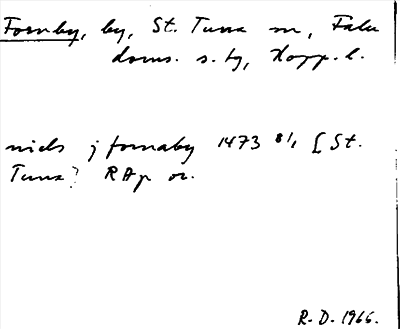 Fornby, by, St. Tuna sn, Falu
doms. s. tg, Kopp. l.
niels j fornaby 1473 8/1 [St.
Tuna? RAp or.
R. D. 1966.